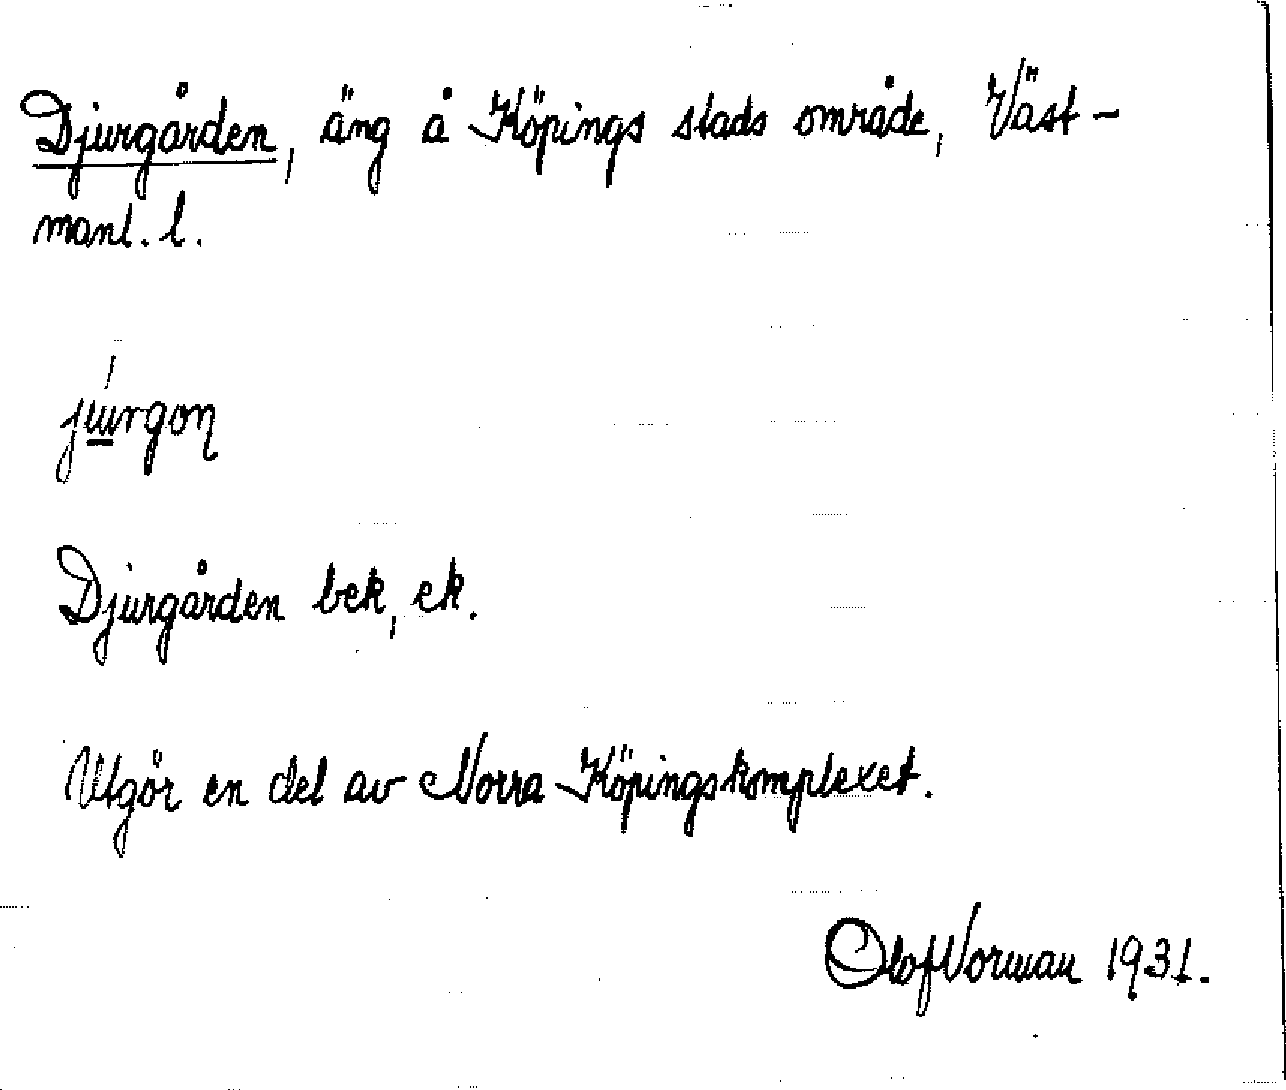 Djurgården, äng å Köpings stads område, Väst-
manl. l.
jɯ̲́rgoɳ
Djurgården bek, ek.
Utgör en del av Norra Köpingskomplexet.
Olof Norman 1931.